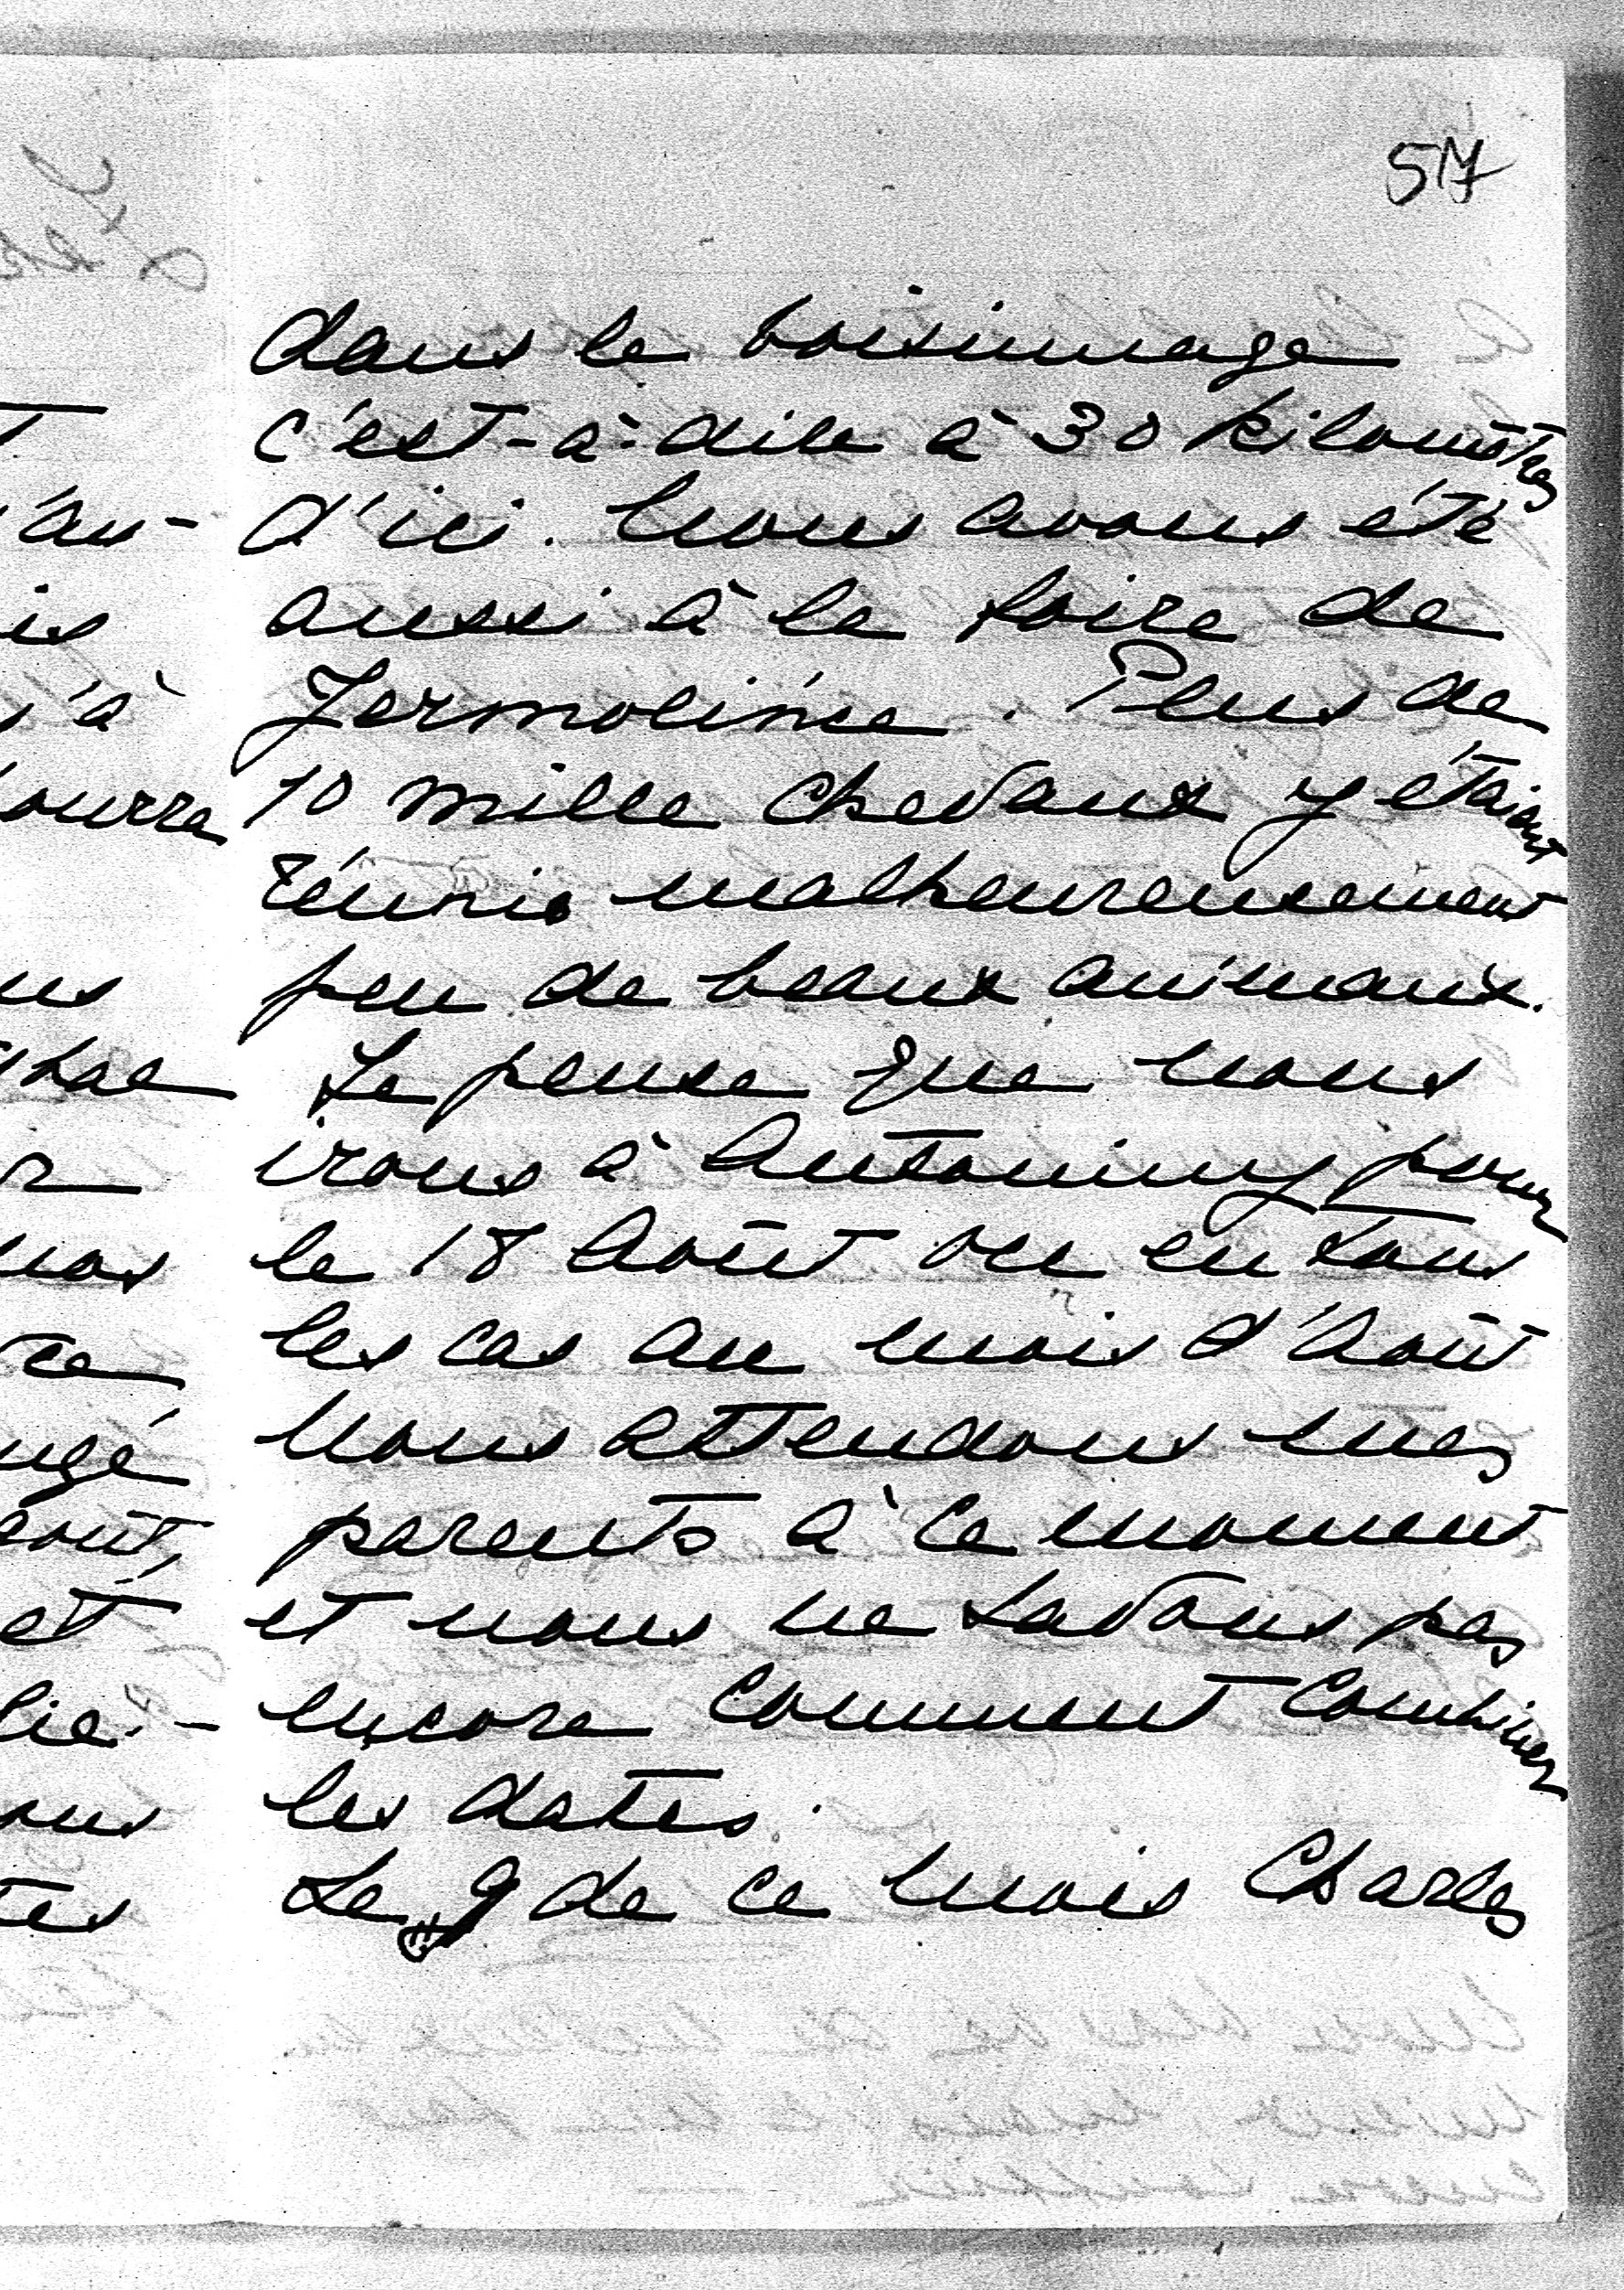 57
dans le voisinnage
c'est-à-dire à 30 kilomètres
d'ici. Nous avons été
aussi à la foire de
Jermolince. Plus de
10 mille chevaux y étaient
réunis malheureusement
peu de beaux animaux.
Je pense que nous
irons à Antoniny pour
le 18 Août ou en tous
les cas au mois d'Août
Nous attendons mes
parents à ce moment
et nous ne savons pas
encore comment combiner
les dates.
Le 9 de ce mois Charles